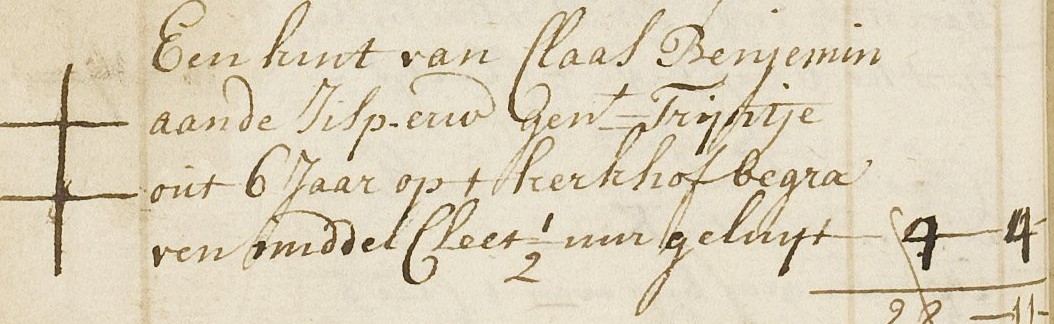 Een kint van Claas Benjemin
aande Jisp-erw Gent = Trijntje
out 6 Jaar op t kerkhof begra
ven middel Cleet ½ uur geluyt 4 4
28 - 11 -